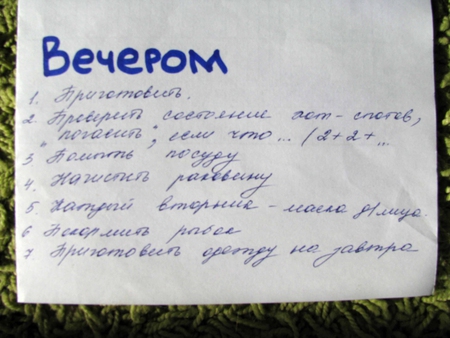 Вечером
1. Приготовить.
2. Проверить состояние хот-спотов,
"погасить", если что... /2+2+...
3 Помыть посуду
4. Начистить раковину
5. Каждый вторник - маска д/лица.
6 Покормить рыбок
7 Приготовить одежду на завтра